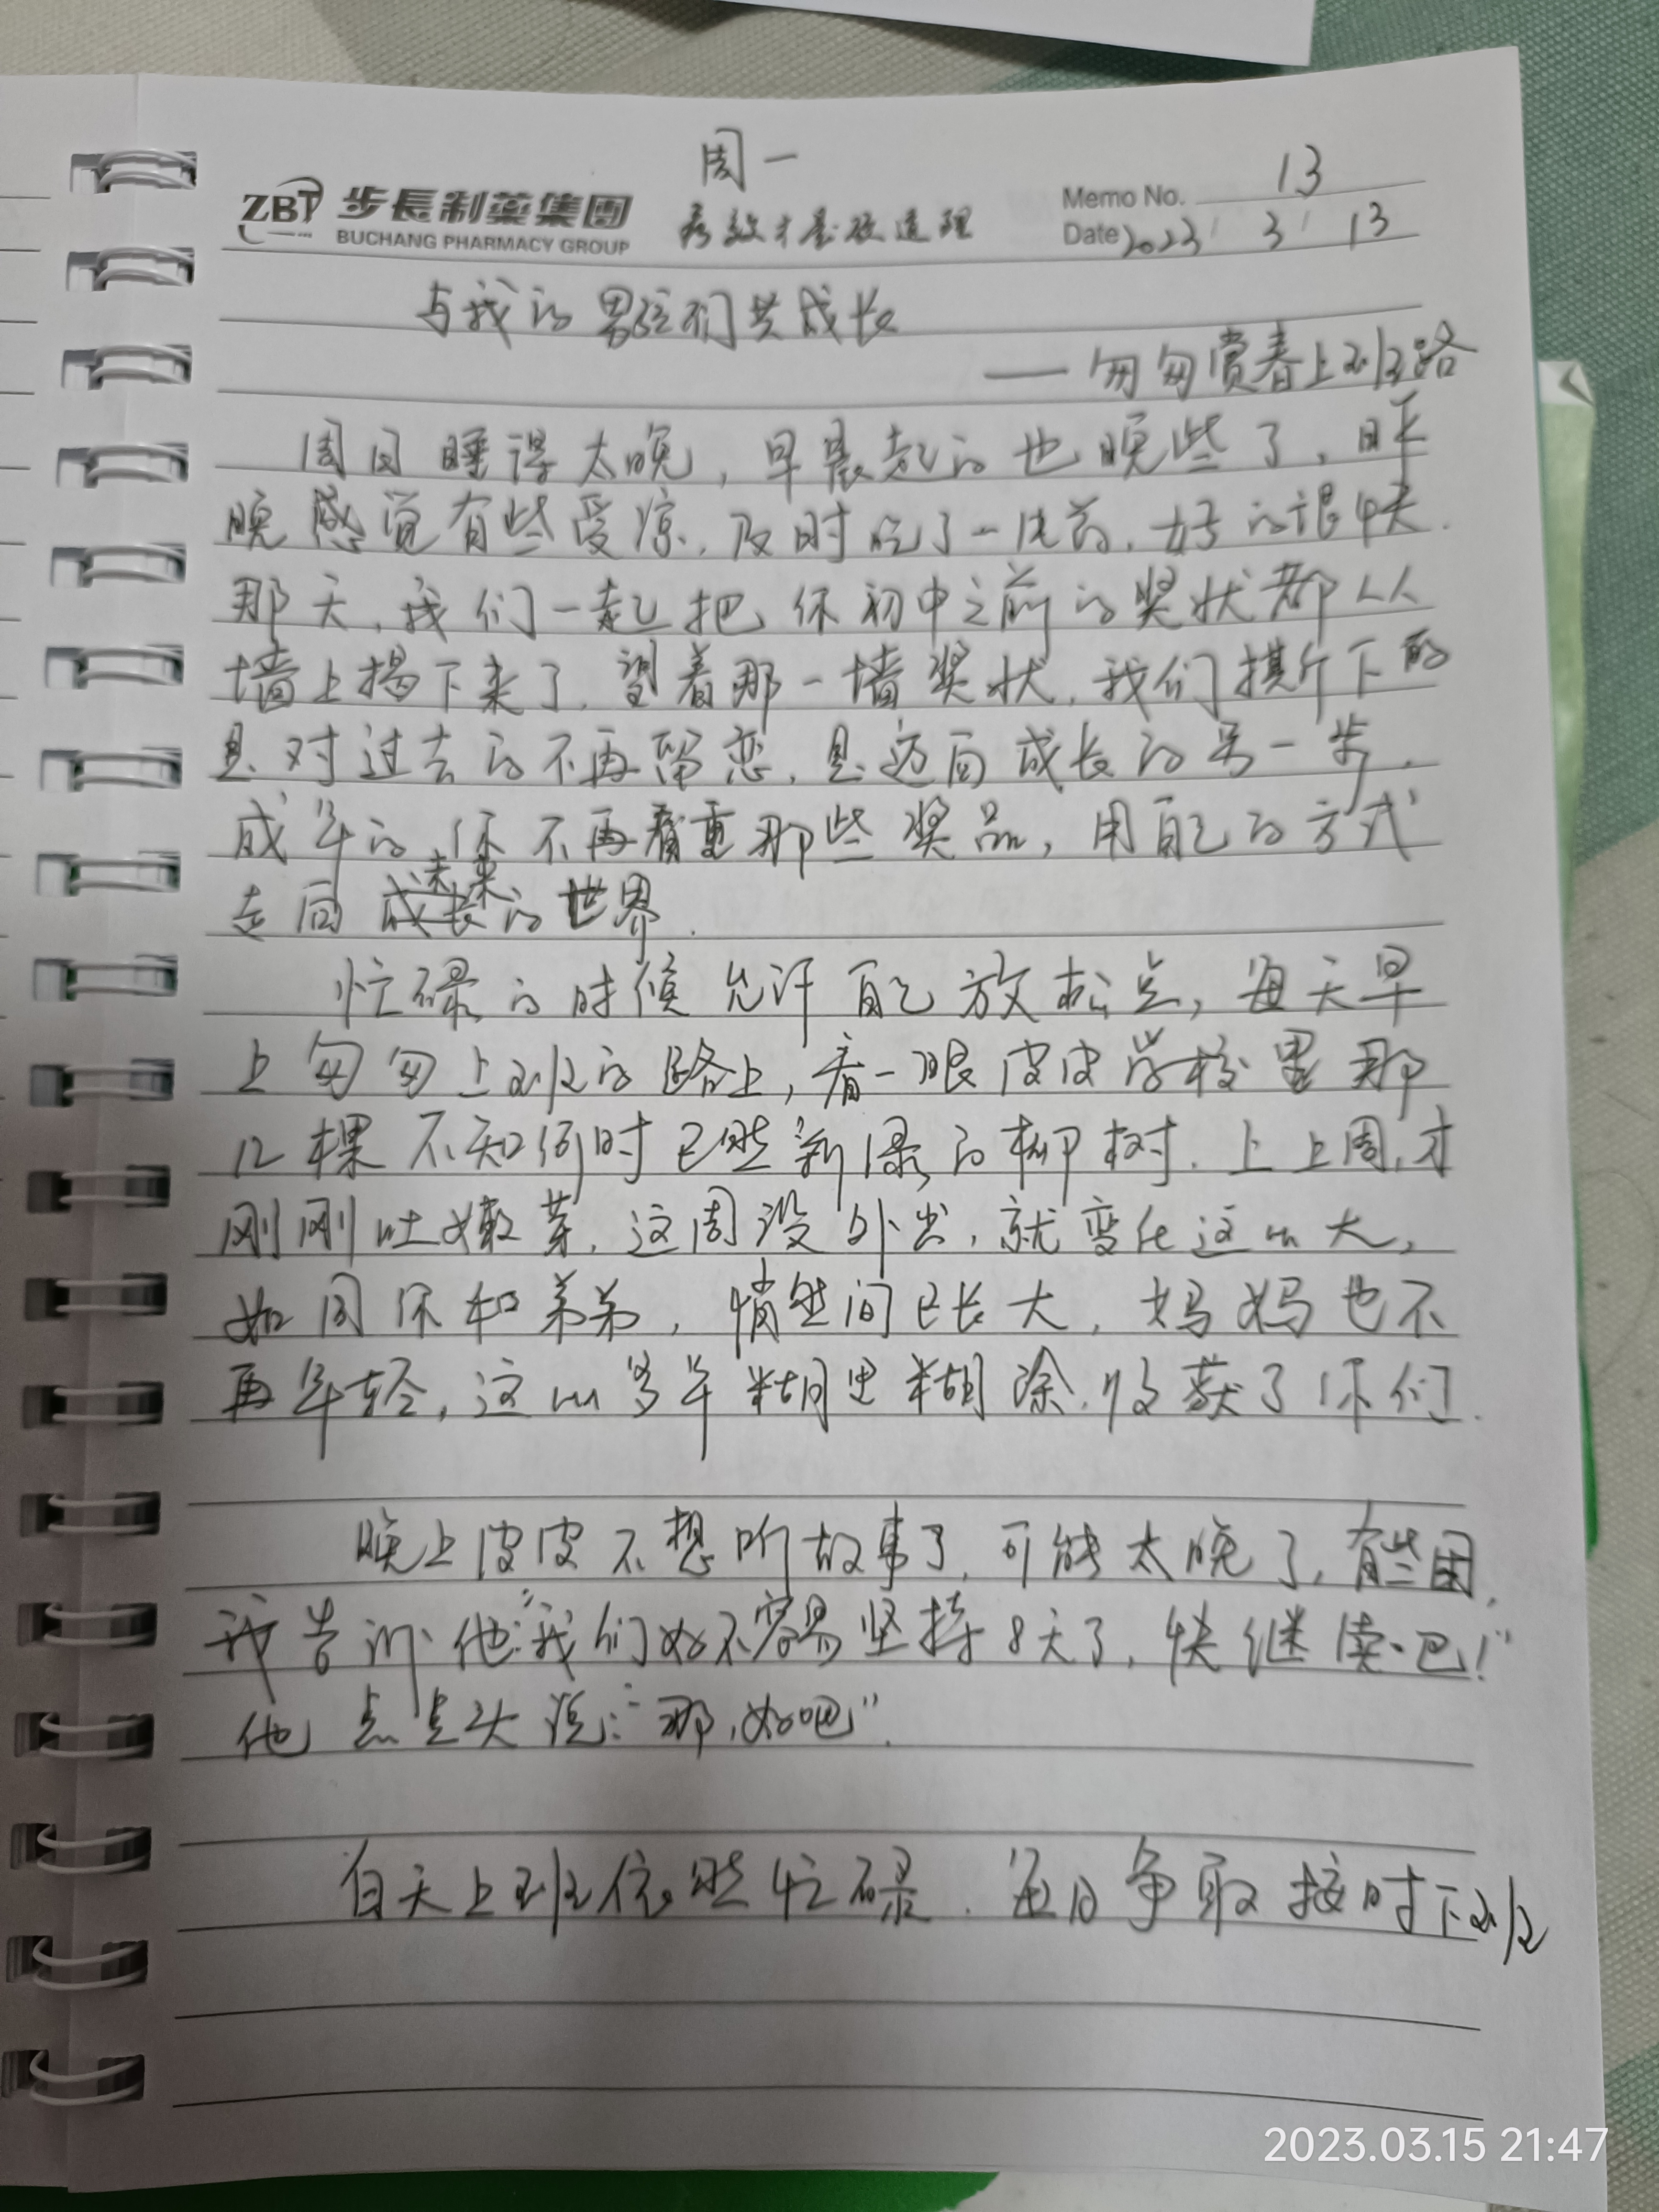 周一
ZBT 步長制藥集團
BUCHANG PHARMACY GROUP
疗效才是硬道理
Memo No. 13
Date 2023 / 3 / 13
与我的男孩们共成长
——匆匆赏春上班路
周日睡得太晚，早晨起的也晚些了，昨
晚感觉有些受凉，及时吃了一次药，好的很快.
那天，我们一起把你初中之前的奖状都从
墙上揭下来了，望着那一墙奖状，我们撕下的
是对过去的不再留恋，是迈向成长的另一步，
成年的你不再看重那些奖品，用自己的方式
走向未来的世界.
忙碌的时候允许自己放松点，每天早
上匆匆上班的路上，看一眼皮皮学校里那
几棵不知何时已然新绿的柳树. 上上周,才
刚刚吐嫩芽，这周没外出，就变化这么大，
如同你和弟弟，悄然间已长大，妈妈也不
再年轻，这么多年糊里糊涂，收获了你们.
晚上皮皮不想听故事了，可能太晚了，有些困，
我告诉他:“我们好不容易坚持8天了，快继续吧!”
他点点头说:“那,好吧”.
白天上班依然忙碌. 每日争取按时下班
2023.03.15 21:47